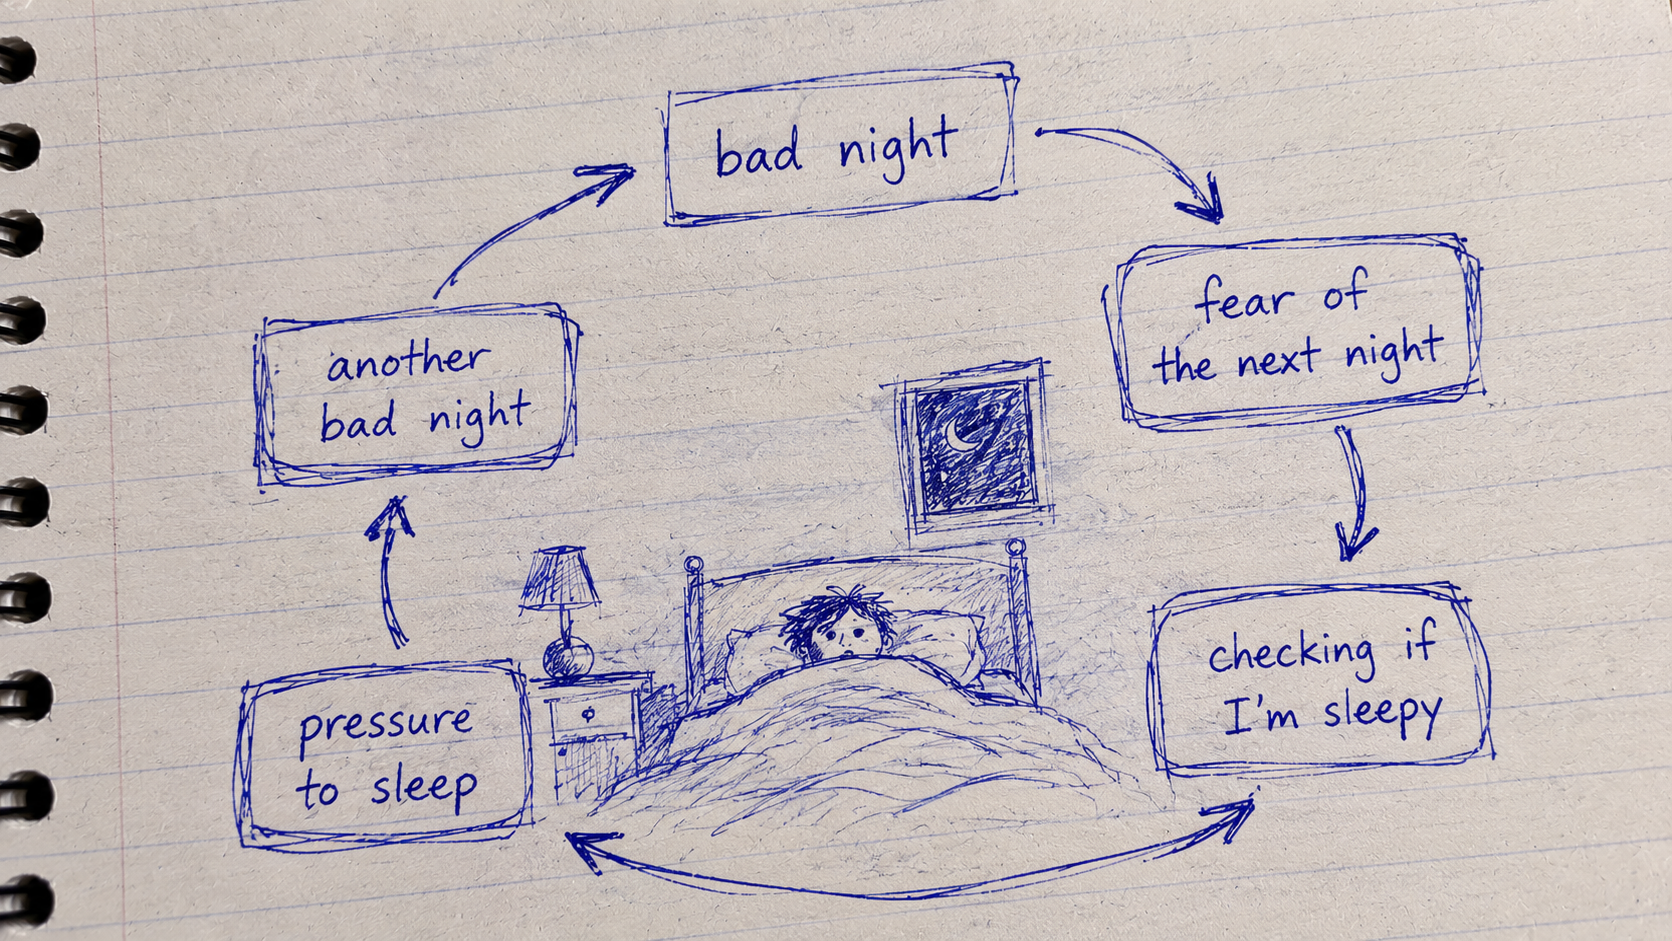 bad night
fear of
the next night
checking if
I'm sleepy
pressure
to sleep
another
bad night